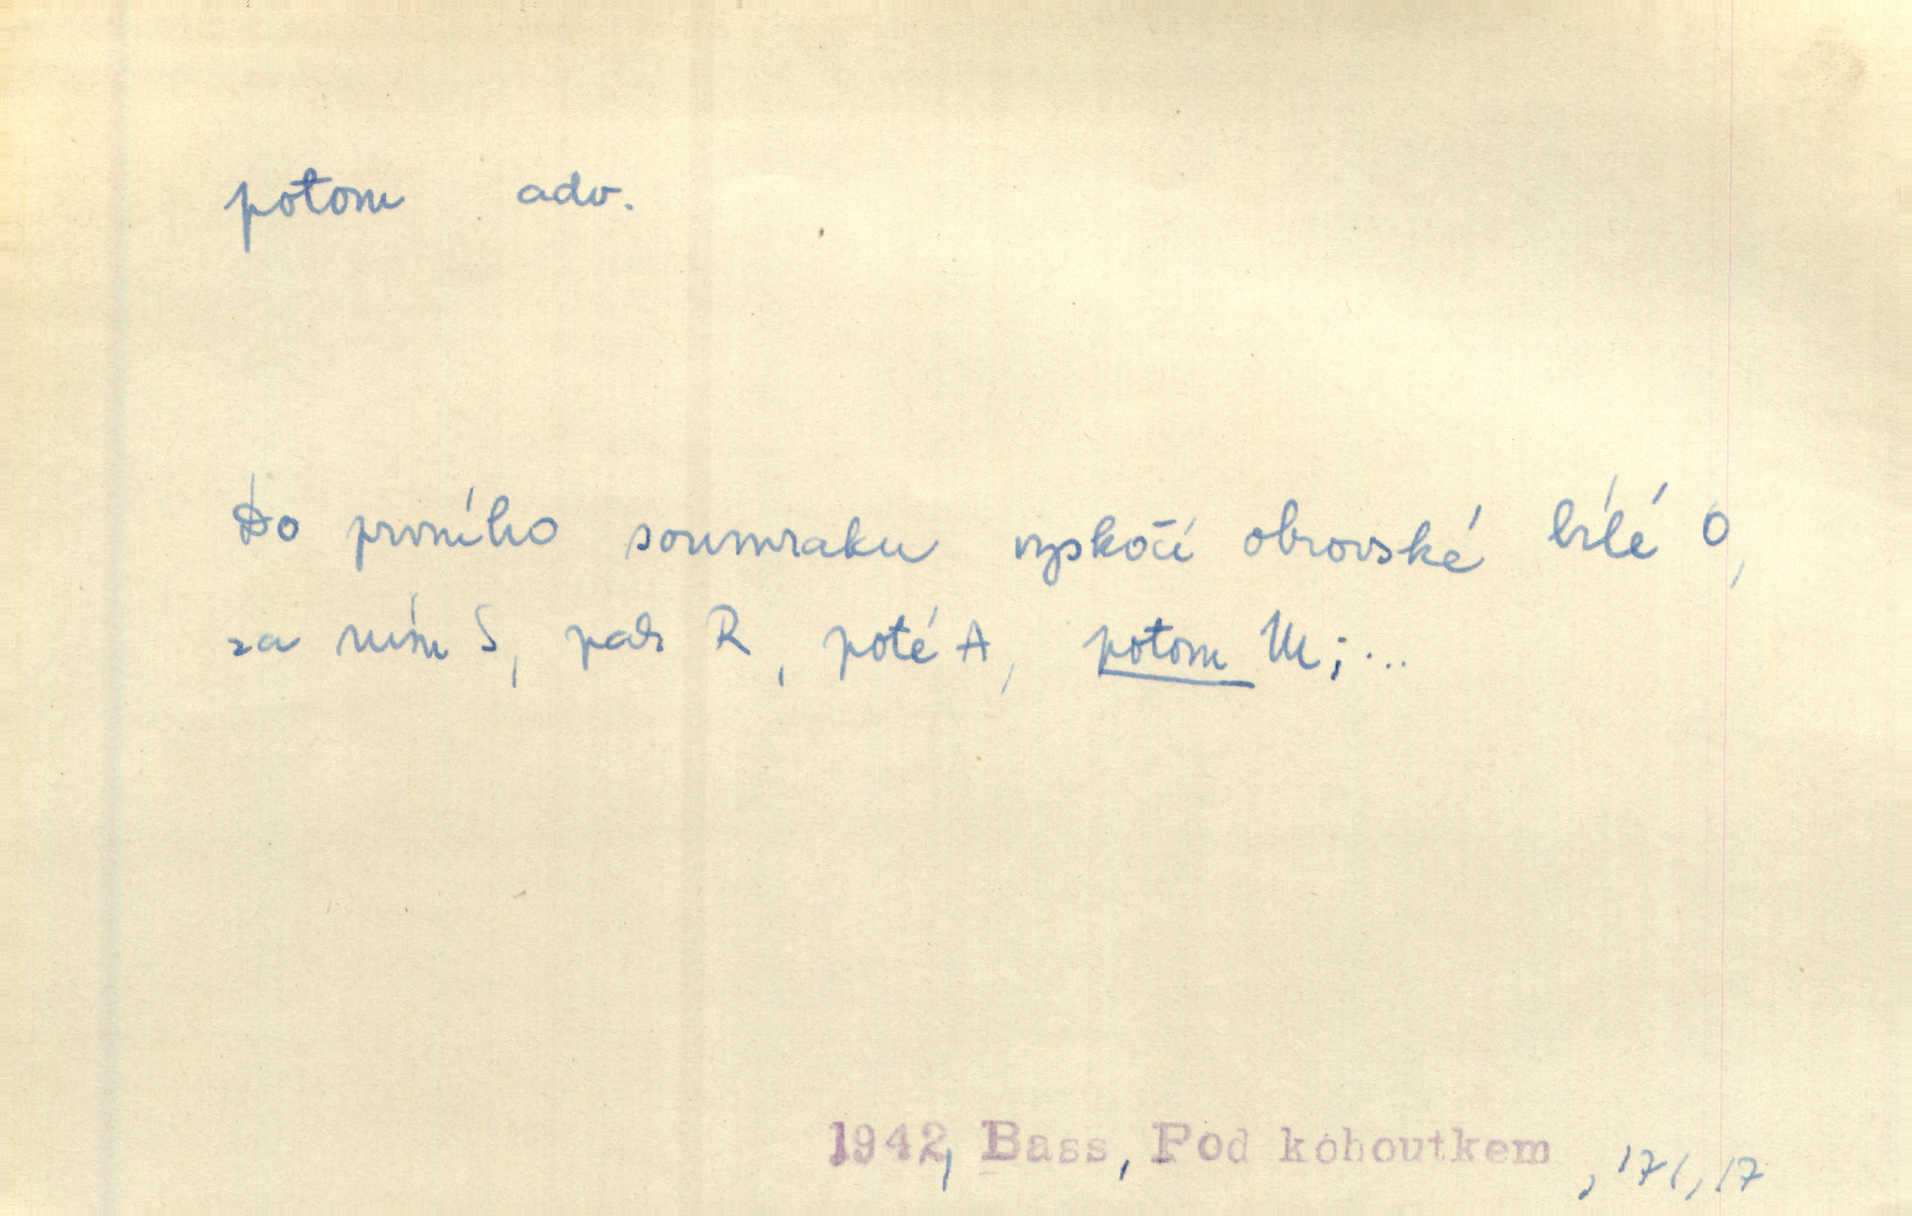 potom adv.
Do prvního soumraku vyskočí obrovské bílé O,
za ním S, pak R, poté A, potom M;...
1942, Bass, Pod kohoutkem, 171, 17